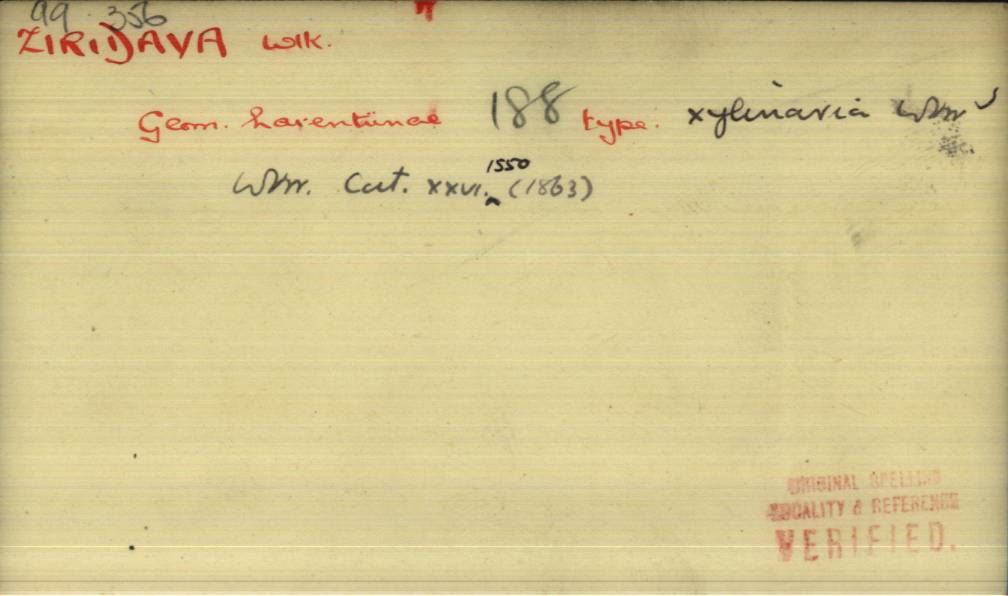 99 . 356
ZIRIDAVA WlK.
Geom. Larentiinae 188 type. xylinaria Wkr
Wkr. Cat. xxvi. 1550 (1863)
ORIGINAL SPELLING
LOCALITY & REFERENCE
VERIFIED.